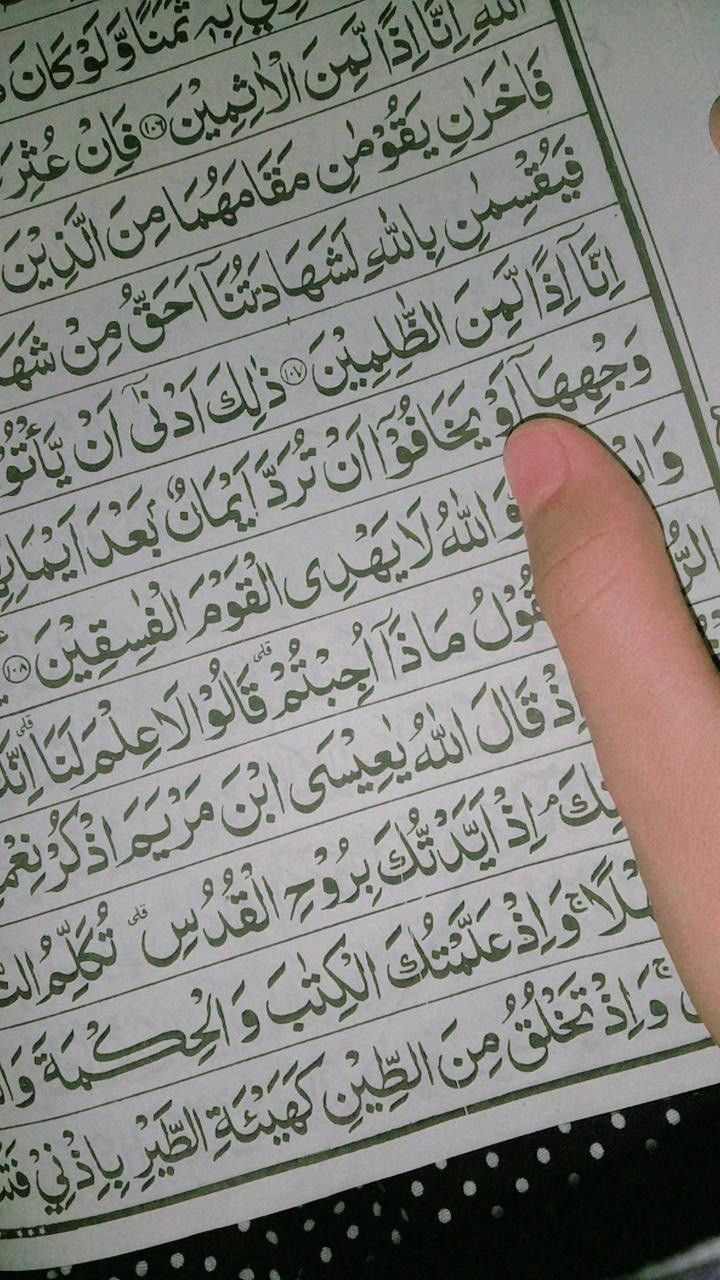 بِهٖ ثَمَنًا وَّلَوْ كَانَ
اللّٰهِ اِنَّاۤ اِذًا لَّمِنَ الْاٰثِمِيْنَ ۝١٠٦ فَاِنْ عُثِرَ
فَاٰخَرٰنِ يَقُوْمٰنِ مَقَامَهُمَا مِنَ الَّذِيْنَ
فَيُقْسِمٰنِ بِاللّٰهِ لَشَهَادَتُنَاۤ اَحَقُّ مِنْ
اِنَّاۤ اِذًا لَّمِنَ الظّٰلِمِيْنَ ۝١٠٧ ذٰلِكَ اَدْنٰۤى اَنْ
وَجْهِهَاۤ اَوْ يَخَافُوْۤا اَنْ تُرَدَّ اَيْمَانٌۢ بَعْدَ
وَاللّٰهُ لَا يَهْدِى الْقَوْمَ الْفٰسِقِيْنَ ۝١٠٨
مَاذَاۤ اُجِبْتُمْ ؕ قَالُوْا لَا عِلْمَ لَنَا ؕ
قَالَ اللّٰهُ يٰعِيْسَى ابْنَ مَرْيَمَ اذْكُرْ
اِذْ اَيَّدْتُّكَ بِرُوْحِ الْقُدُسِ قلى تُكَلِّمُ
ۚ وَاِذْ عَلَّمْتُكَ الْكِتٰبَ وَالْحِكْمَةَ
ۚ وَاِذْ تَخْلُقُ مِنَ الطِّيْنِ كَهَيْئَةِ الطَّيْرِ بِاِذْنِيْ